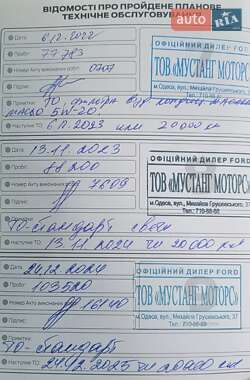 AUTO.RIA
ВІДОМОСТІ ПРО ПРОЙДЕНЕ ПЛАНОВЕ
ТЕХНІЧНЕ ОБСЛУГОВУВАННЯ
Дата: 6.12.2022
Пробіг: 77783
Номер Акту виконаних
Підпис
Примітки: ТО,
масло 5W-20.
Наступне ТО: 6.12.2023 или 20000 км
ОФІЦІЙНИЙ ДИЛЕР FORD
ТОВ «МУСТАНГ МОТОРС»
м.Одеса, вул. Михайла Грушевського, 37
Дата: 13.11.2023
Пробіг: 88200
Номер Акту виконаних 7609
Підпис
ТО-стандарт свечи
Наступне ТО: 13.11.2024 чи 20000 км
ОФІЦІЙНИЙ ДИЛЕР FORD
ТОВ «МУСТАНГ МОТОРС»
м.Одеса, вул. Михайла Грушевського, 37
Тел.: 710-88-88
Дата: 24.12.2024
Пробіг: 103520
Номер Акту виконаних
Підпис
Примітки:
ТО-стандарт
Наступне ТО: 24.12.2025 чи 20000 км
ОФІЦІЙНИЙ ДИЛЕР FORD
ТОВ «МУСТАНГ МОТОРС»
м.Одеса, вул. Михайла Грушевського, 37